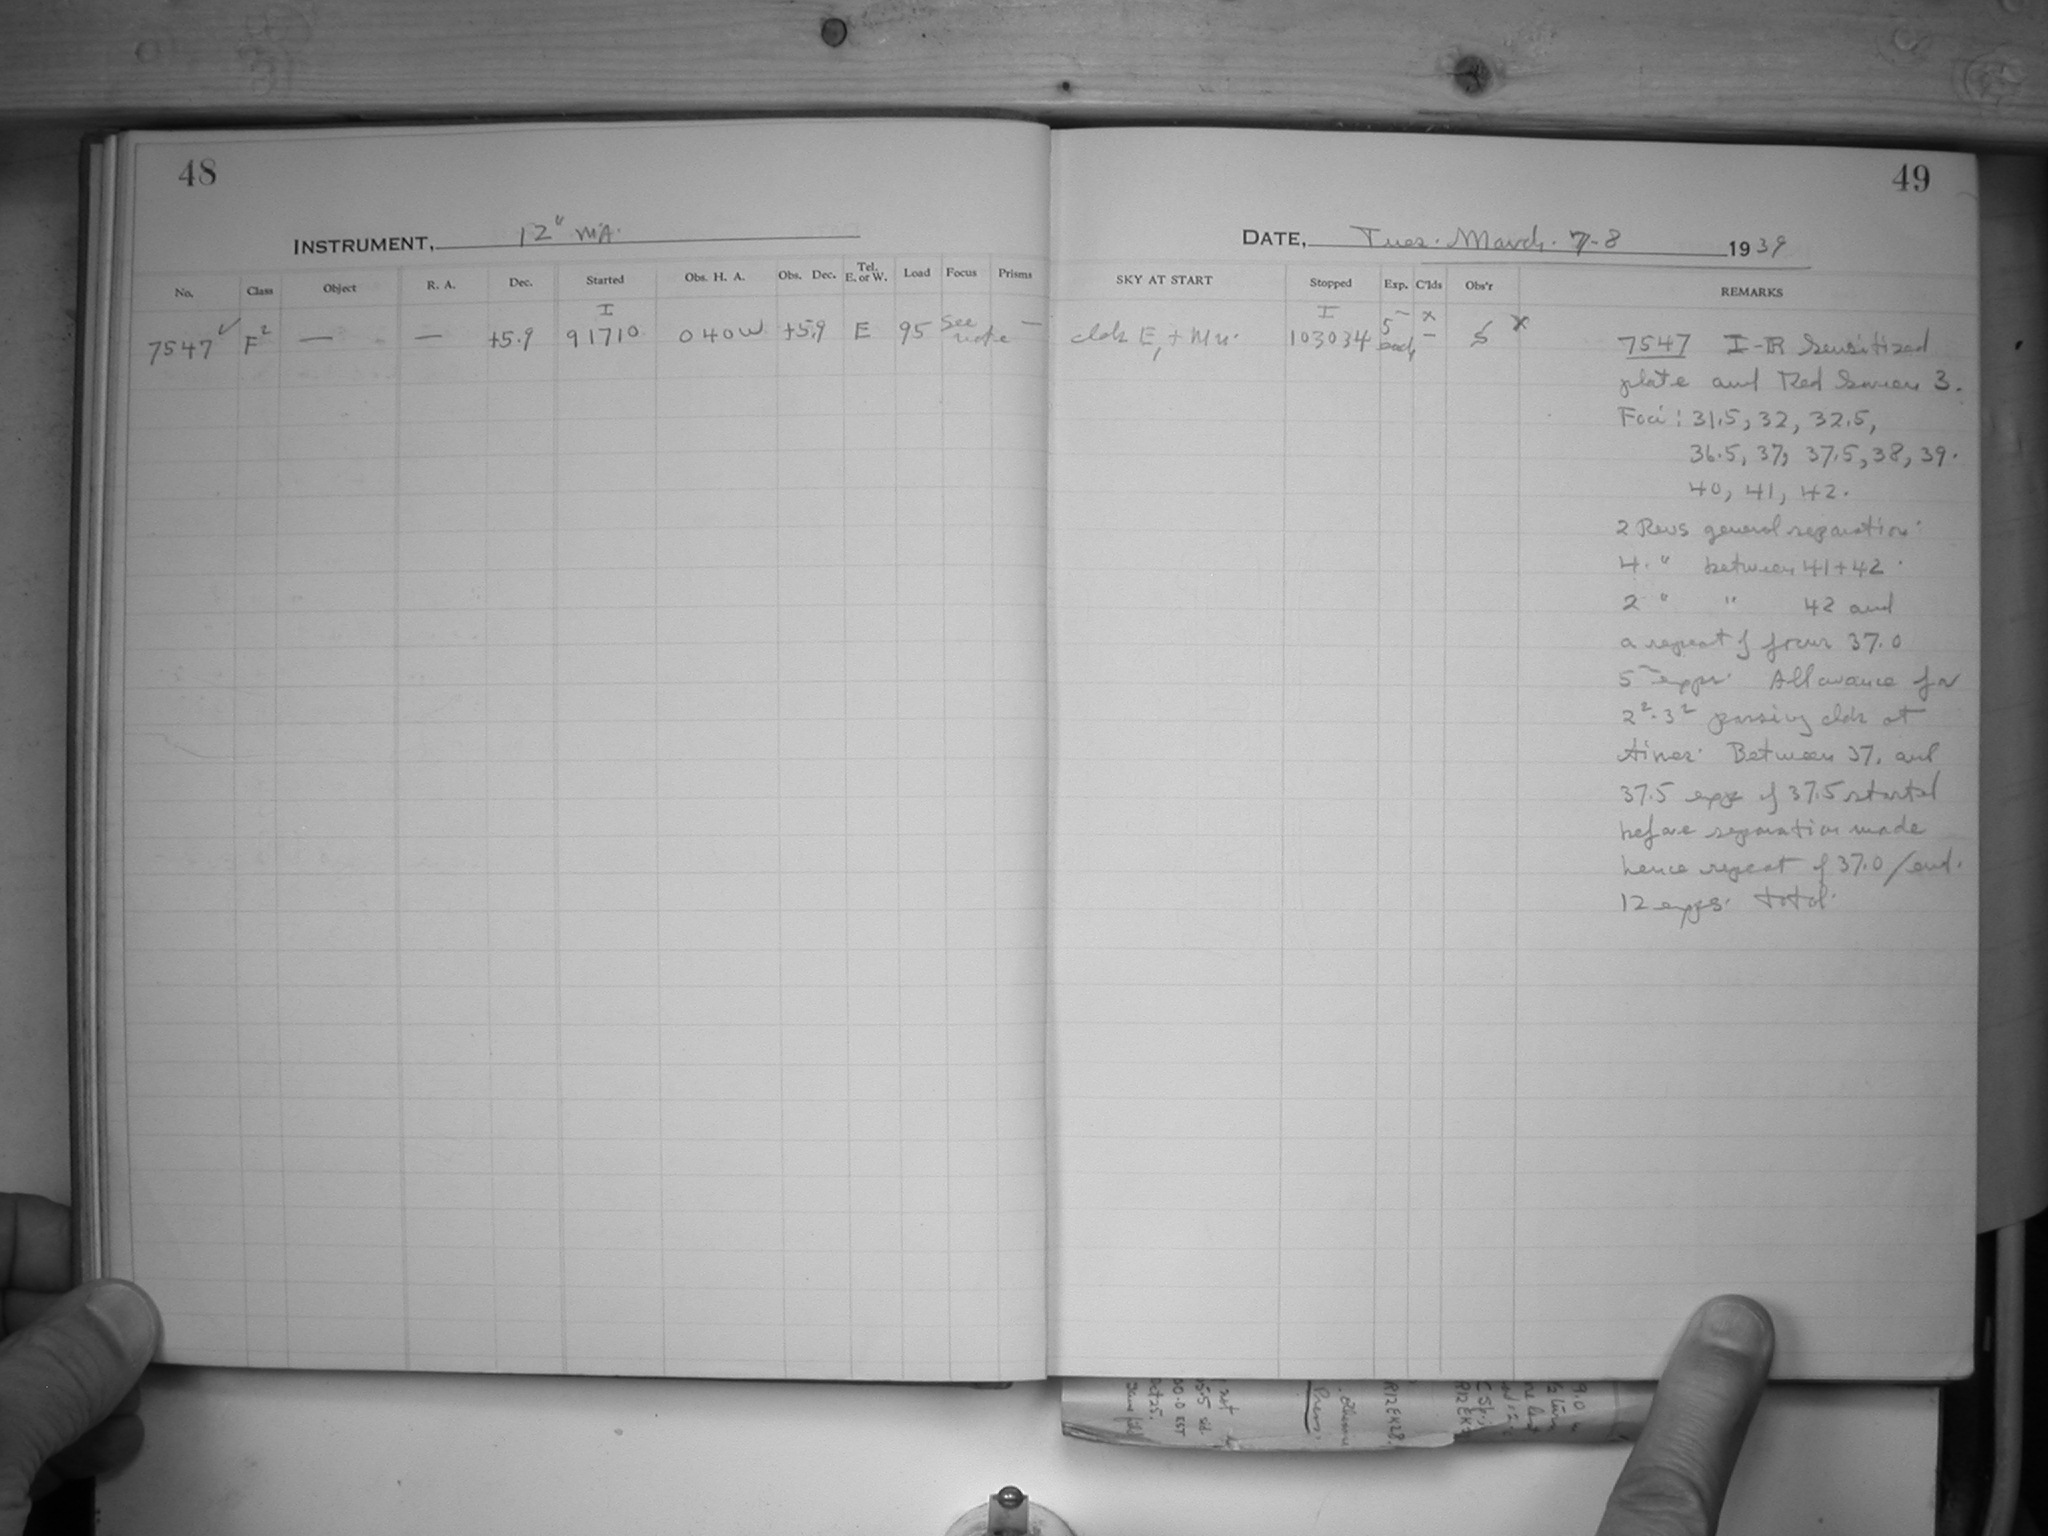 48
INSTRUMENT, 12" MA.
No. Class Object R. A. Dec. Started Obs. H. A. Obs. Dec. Tel. E. or W. Load Focus Prisms
I
7547 ✓ F² — — +5.9 91710 040W +5.9 E 95 See note —
49
DATE, Tues. March. 7-8 1939
SKY AT START Stopped Exp. C'lds Obs'r REMARKS
I x
clds E, + Mn. 103034 5 each — S x
7547 I-R Sensitized
plate and Red Screen 3.
Foci: 31.5, 32, 32.5,
36.5, 37, 37.5, 38, 39.
40, 41, 42.
2 Revs general separation.
4 " between 41+42.
2 " " 42 and
a repeat of focus 37.0
5 exps. Allowance for
2²-3² passing clds at
times. Between 37. and
37.5 exp of 37.5 started
before separation made
hence repeat of 37.0/end.
12 exps. total.
R12EK28.